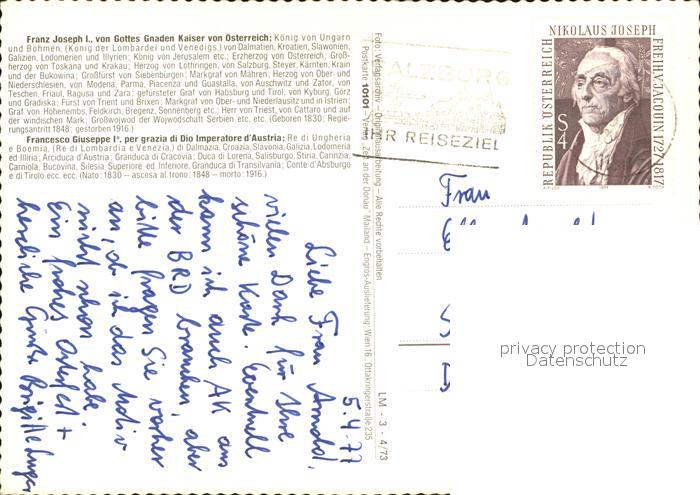 Franz Joseph I., von Gottes Gnaden Kaiser von Österreich; König von Ungarn
und Böhmen, (König der Lombardei und Venedigs,) von Dalmatien, Kroatien, Slawonien,
Galizien, Lodomerien und Illyrien; König von Jerusalem etc.; Erzherzog von Österreich; Groß-
herzog von Toskana und Krakau; Herzog von Lothringen, von Salzburg, Steyer, Kärnten, Krain
und der Bukowina; Großfürst von Siebenbürgen; Markgraf von Mähren; Herzog von Ober- und
Niederschlesien, von Modena, Parma, Piacenza und Guastalla, von Auschwitz und Zator, von
Teschen, Friaul, Ragusa und Zara; gefürsteter Graf von Habsburg und Tirol, von Kyburg, Görz
und Gradiska; Fürst von Trient und Brixen; Markgraf von Ober- und Niederlausitz und in Istrien;
Graf von Hohenembs, Feldkirch, Bregenz, Sonnenberg etc.; Herr von Triest, von Cattaro und auf
der windischen Mark; Großwojwod der Wojwodschaft Serbien etc. etc. (Geboren 1830; Regie-
rungsantritt 1848; gestorben 1916.)
Francesco Giuseppe Iº, per grazia di Dio Imperatore d'Austria; Re di Ungheria
e Boemia, (Re di Lombardia e Venezia,) di Dalmazia, Croazia, Slavonia, Galizia, Lodomeria
ed Illiria; Arciduca d'Austria; Granduca di Cracovia; Duca di Lorena, Salisburgo, Stiria, Carinzia,
Carniola, Bucovina, Silesia Superiore ed Inferiore, Granduca di Transilvania; Conte d'Absburgo
e di Tirolo ecc. ecc. (Nato: 1830 — ascesa al trono: 1848 — morto: 1916.)
5.4.77
Liebe Frau Arnold,
vielen Dank für Ihre
schöne Karte. Eventuell
kann ich auch AK aus
der BRD brauchen, aber
bitte fragen Sie vorher
an, ob ich das Motiv
nicht schon habe.
Ein frohes Osterfest +
herzliche Grüße Brigitte
Foto: Verlagsarchiv — Originalausarbeitung — Alle Rechte vorbehalten
Postkarte 10101 - Verlag „Zeit an der Donau" Mailand — Engros-Auslieferung: Wien 16., Ottakringerstraße 235
LM - 3 - 4/73
SALZBURG
IHR REISEZIEL
NIKOLAUS JOSEPH
FREIH. V. JACQUIN 1727-1817
REPUBLIK ÖSTERREICH
S 4
Frau
privacy protection
Datenschutz